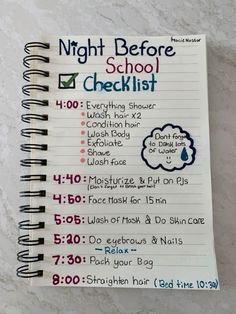 Night Before
School
Checklist
4:00: Everything Shower
Wash hair x2
Condition hair
Wash Body
Exfoliate
Shave
Wash face
Dont forget
to Drink lots
of water
4:40: Moisturize & Put on PJs
(Don't forget to Brush your hair)
4:50: Face Mask for 15 min
5:05: Wash of Mask & Do Skin Care
5:20: Do eyebrows & Nails
~ Relax ~
7:30: Pack your Bag
8:00: Straighten hair (Bed time 10:30)